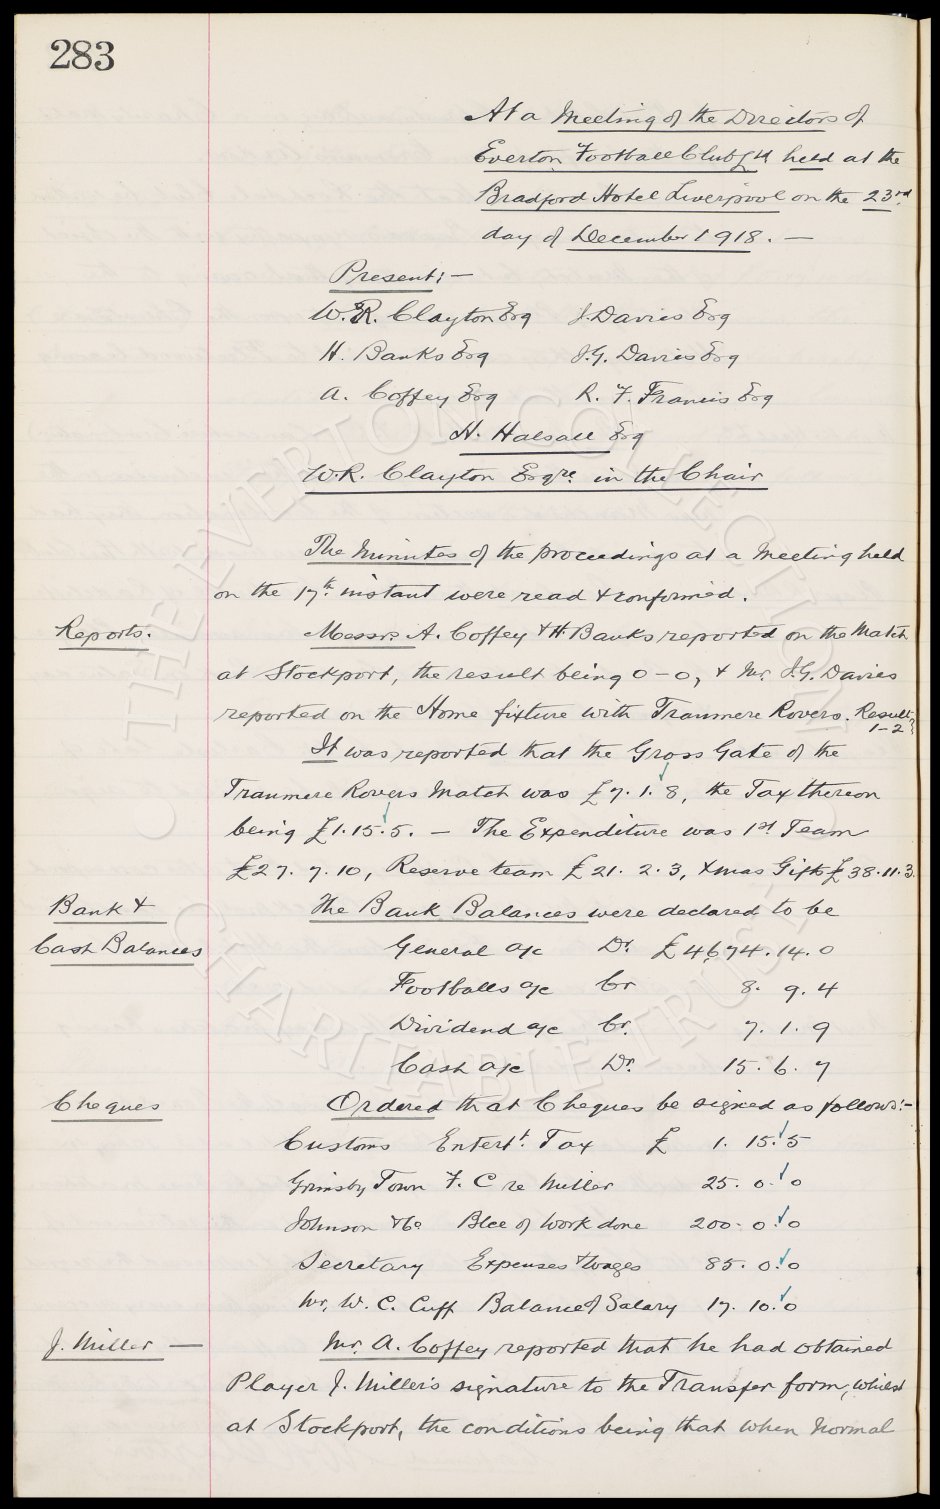 283
At a Meeting of the Directors of
Everton Football Club Ld. held at the
Bradford Hotel Liverpool on the 23rd
day of December 1918. —
Present: —
W. R. Clayton Esq J. Davies Esq
H. Banks Esq J.G. Davies Esq
A. Coffey Esq R. F. Francis Esq
H. Halsall Esq
W.R. Clayton Esqre. in the Chair
The Minutes of the proceedings at a Meeting held
on the 17th instant were read & confirmed.
Reports. Messrs A. Coffey & H. Banks reported on the Match
at Stockport, the result being 0-0, & Mr. J.G. Davies
reported on the Home fixture with Tranmere Rovers. Result
1-2
It was reported that the Gross Gate of the
Tranmere Rovers Match was £7.1.8, the Tax thereon
being £1.15.5. — The Expenditure was 1st Team
£27. 7. 10, Reserve team £21. 2. 3, Xmas Gifts £38.11.3
Bank & The Bank Balances were declared to be
Cash Balances General a/c Dr £4674.14.0
Footballs a/c Cr 8. 9. 4
Dividend a/c Cr. 7. 1. 9
Cash a/c Dr. 15. 6. 7
Cheques Ordered that Cheques be signed as follows:-
Customs Entert. Tax £ 1. 15. 5
Grimsby Town F. C re Miller 25. 0. 0
Johnson & Co Blce of work done 200. 0. 0
Secretary Expenses & Wages 85. 0. 0
Mr. W. C. Cuff Balance of Salary 17. 10. 0
J. Miller — Mr. A. Coffey reported that he had obtained
Player J. Miller's signature to the Transfer form, whilst
at Stockport, the conditions being that when normal
THE EVERTON COLLECTION CHARITABLE TRUST